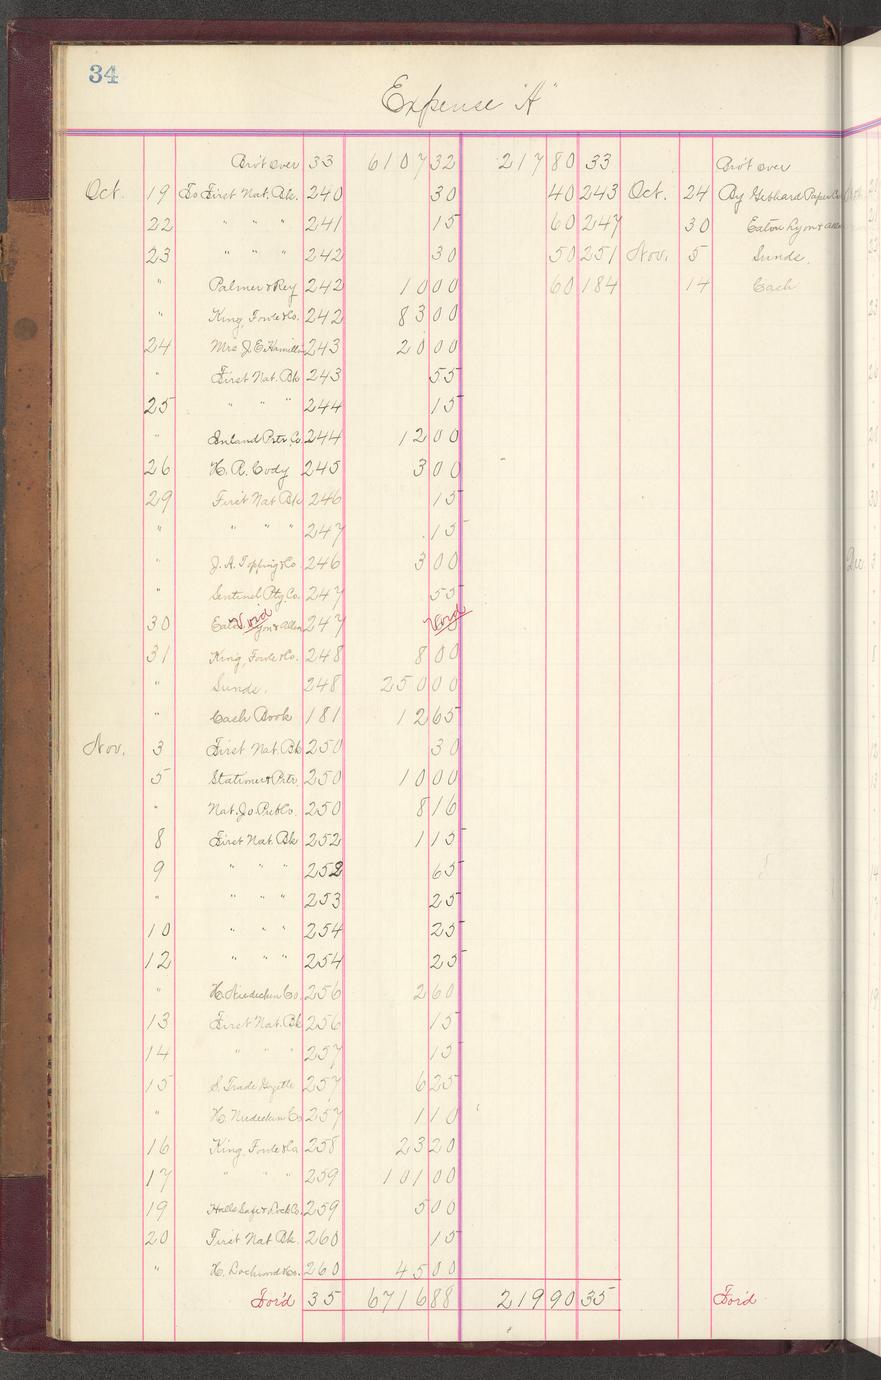 34
Expense "A"
Bro't over 33 6107 32 217 80 33 Bro't over
Oct. 19 To First Nat. Bk. 240 30 40 243 Oct. 24 By Gebhard Paper Co
22 " " " 241 15 60 247 30 Eaton Lyon & Allen
23 " " " 242 30 50 251 Nov. 5 Sunds.
" Palmer & Rey 242 10 00 60 184 14 Cash
" King, Fowle & Co. 242 83 00
24 Mrs J. E. Hamilton 243 20 00
" First Nat. Bk 243 55
25 " " " 244 15
" Inland Prtr. Co. 244 12 00
26 H. A. Cody 245 3 00
29 First Nat Bk 246 15
" " " " 247 15
" J. A. Topping & Co. 246 3 00
" Sentinel Ptg. Co. 247 55
30 Void 247 Void
31 King, Fowle & Co. 248 8 00
" Sunds. 248 250 00
" Cash Book 181 12 65
Nov. 3 First Nat. Bk 250 30
5 Stationer & Prtr. 250 10 00
" Nat. Jo. Pub Co. 250 8 16
8 First Nat. Bk 252 1 15
9 " " " 252 65
" " " " 253 25
10 " " " 254 25
12 " " " 254 25
" H. Niedecken Co. 256 2 60
13 First Nat. Bk 256 15
14 " " " 257 15
15 S. Trade Gazette 257 6 25
" H. Niedecken Co 257 1 10
16 King, Fowle & Co 258 23 20
17 " " " 259 101 00
19 Halls Safe & Lock Co. 259 5 00
20 First Nat Bk. 260 15
" H. Lockwood & Co. 260 45 00
For'd 35 6716 88 219 90 35 For'd